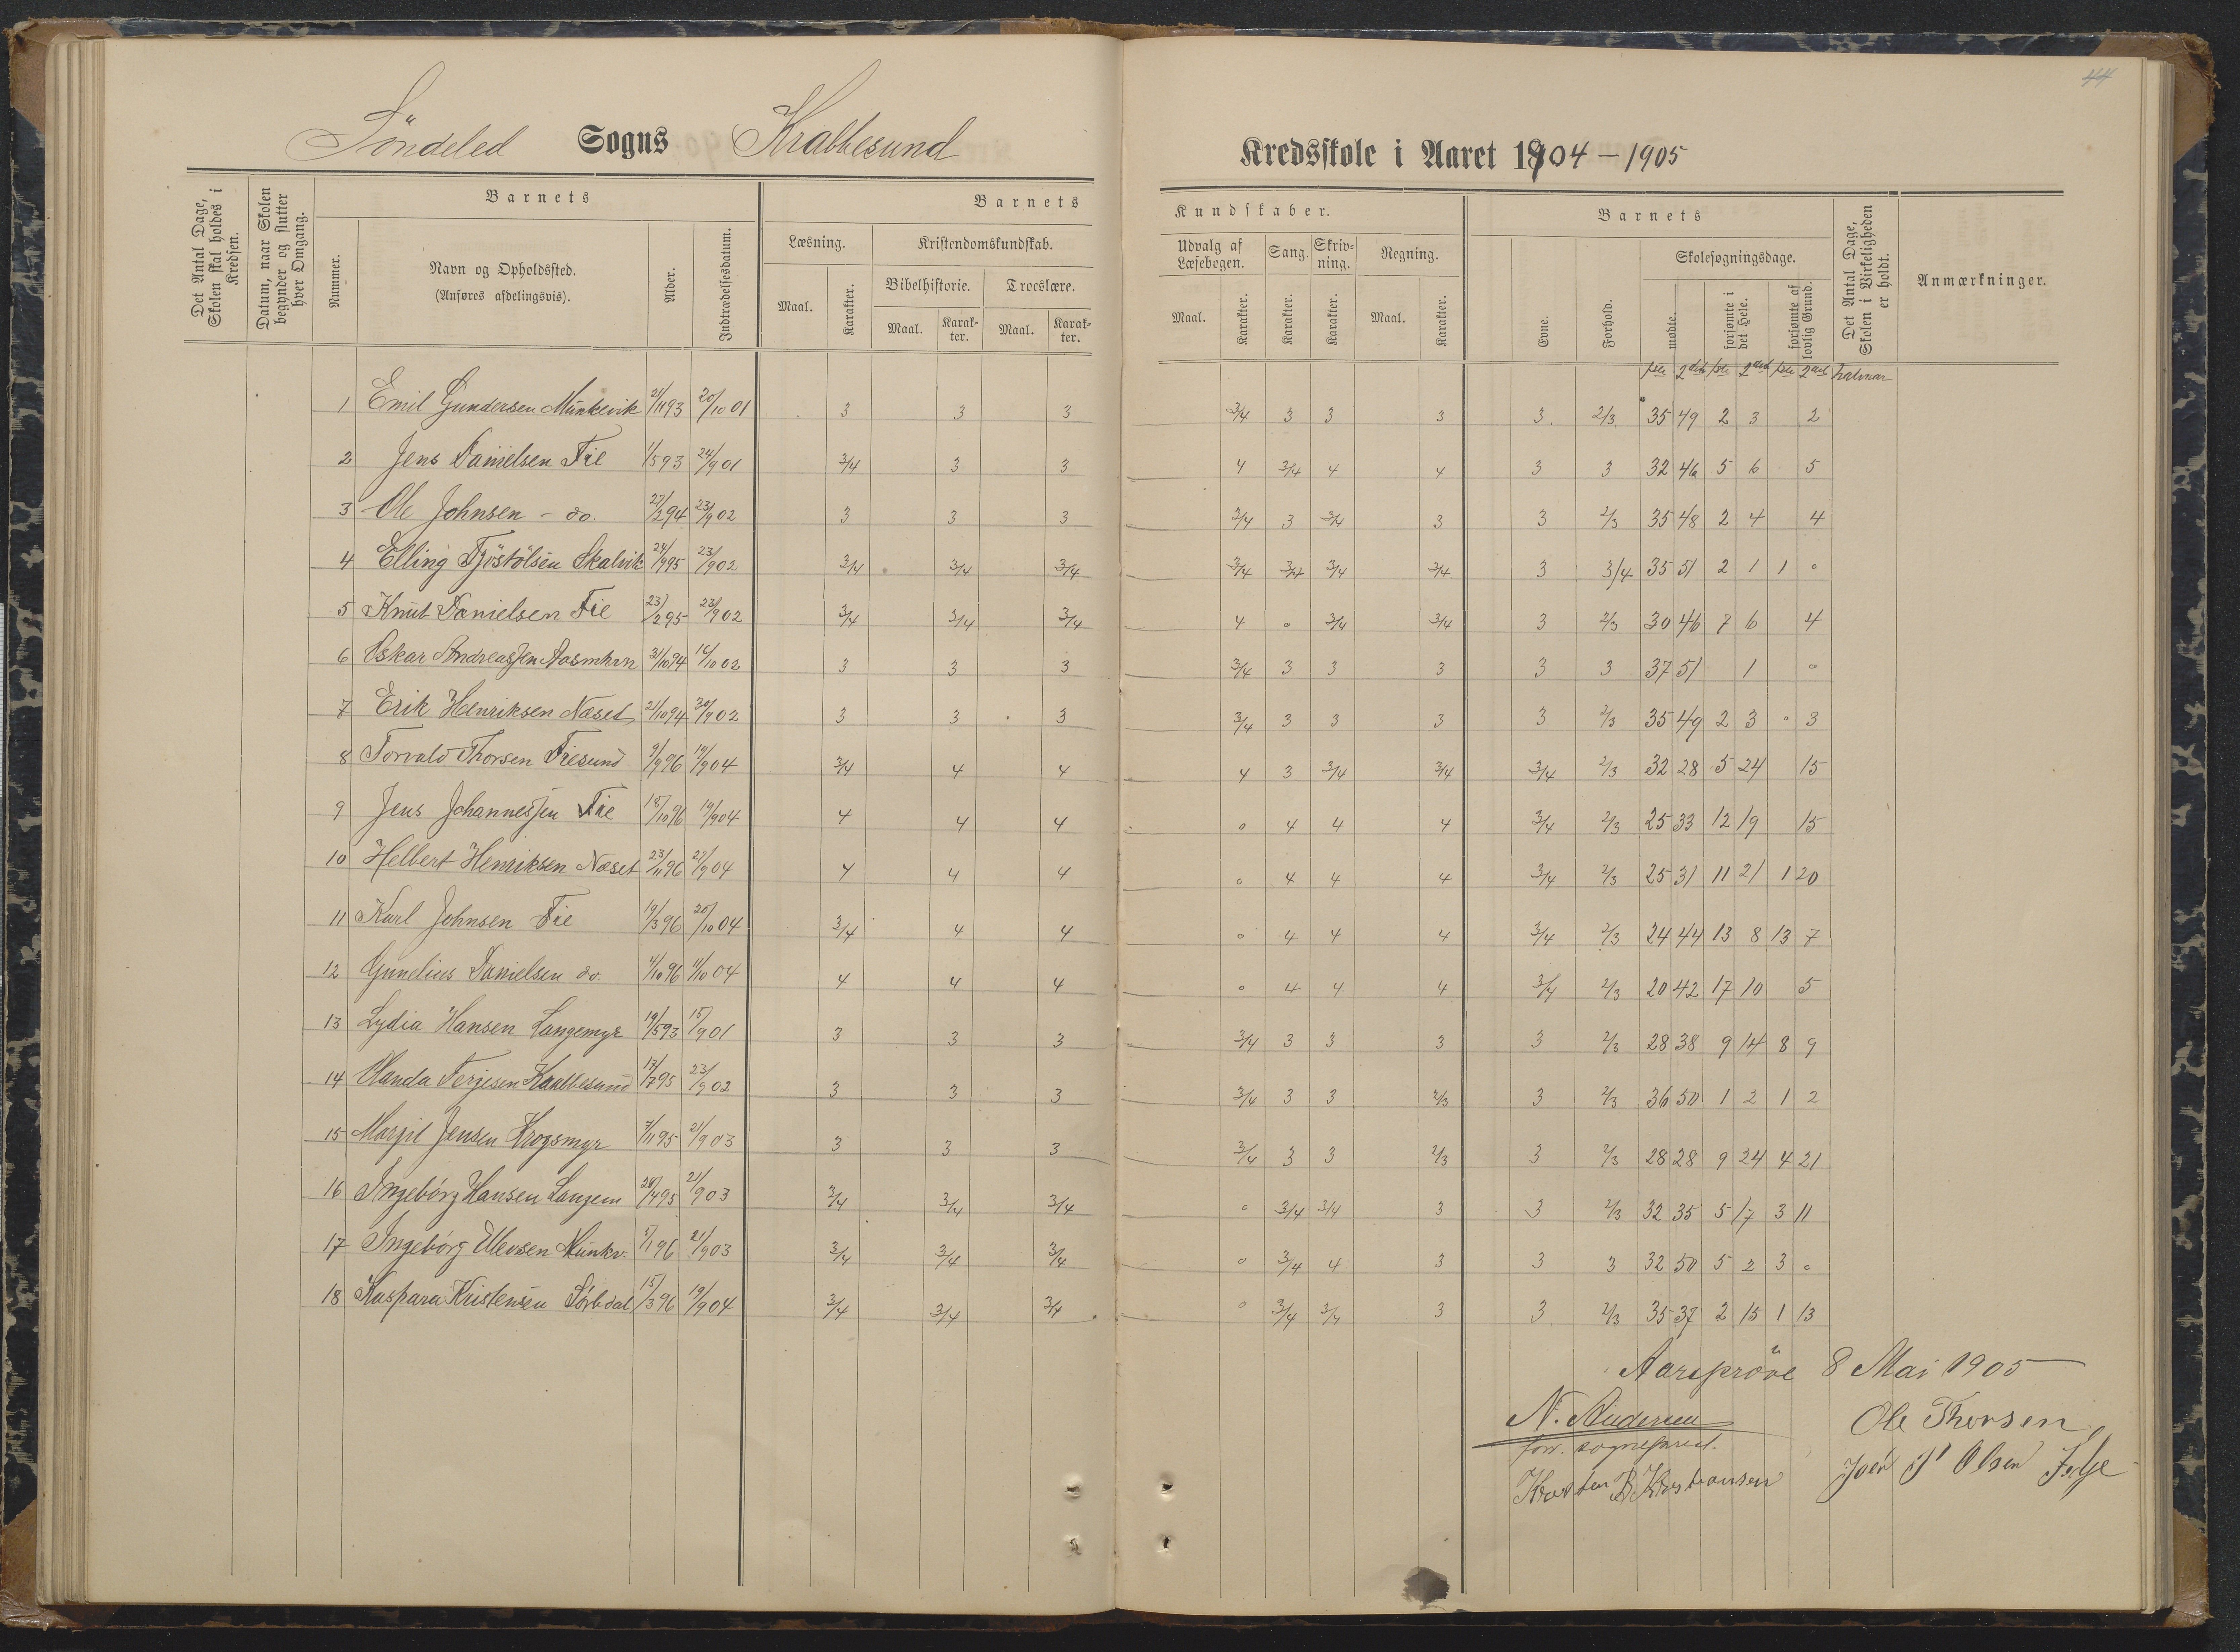 44
Söndeled Sogns Krabbesund Kredsskole i Aaret 1904-1905
Det Antal Dage, Skolen skal holdes i Kredsen.
Datum, naar Skolen begynder og slutter hver Omgang.
Barnets
Nummer.
Navn og Opholdssted.
(Anføres afdelingsvis).
Alder.
Indtrædelsesdatum.
Barnets
Læsning.
Maal.
Karakter.
Kristendomskundskab.
Bibelhistorie.
Maal.
Karak-ter.
Troeslære.
Maal.
Karak-ter.
Kundskaber.
Udvalg af Læsebogen.
Maal.
Karakter.
Sang.
Karakter.
Skriv-ning.
Karakter.
Regning.
Maal.
Karakter.
Barnets
Evne.
Forhold.
Skolesøgningsdage.
mødte.
forsømte i det Hele.
forsømte af lovlig Grund.
Det Antal Dage, Skolen i Virkeligheden er holdt.
Anmærkninger.
halvaar
1 Emil Gundersen Munkevik 21/11 93 20/10 01 3 3 3 3/4 3 3 3 3 2/3 35 49 2 3 2
2 Jens Danielsen Fie 1/5 93 24/9 01 3/4 3 3 4 3/4 4 4 3 3 32 46 5 6 5
3 Ole Johnsen - do. 27/2 94 23/9 02 3 3 3 3/4 3 3/4 3 3 2/3 35 48 2 4 4
4 Elling Tjöstölsen Skalvik 24/9 95 23/9 02 3/4 3/4 3/4 3/4 3/4 3/4 3/4 3 3/4 35 51 2 1 1 0
5 Knut Danielsen Fie 23/2 95 23/9 02 3/4 3/4 3/4 4 0 3/4 3/4 3 2/3 30 46 7 6 4
6 Oskar Andreassen 31/10 94 16/10 02 3 3 3 3/4 3 3 3 3 3 37 51 1 0
7 Erik Henriksen Næset 21/10 94 30/9 02 3 3 3 3/4 3 3 3 3 2/3 35 49 2 3 " 3
8 Torvald Thorsen Fiesund 9/9 96 19/9 04 3/4 4 4 4 3 3/4 3/4 3/4 2/3 32 28 5 24 15
9 Jens Johannessen Fie 18/10 96 19/9 04 4 4 4 0 4 4 4 3/4 2/3 25 33 12 19 15
10 Helbert Henriksen Næset 23/11 96 27/9 04 4 4 4 0 4 4 4 3/4 2/3 25 31 11 21 1 20
11 Karl Johnsen Fie 19/3 96 20/10 04 3/4 4 4 0 4 4 4 3/4 2/3 24 44 13 8 13 7
12 Gunelius Danielsen do. 4/10 96 11/10 04 4 4 4 0 4 4 4 3/4 2/3 20 42 17 10 5
13 Lydia Hansen Langemyr 19/5 93 15/9 01 3 3 3 3/4 3 3 3 3 2/3 28 38 9 14 8 9
14 Olanda Terjesen Krabbesund 17/7 95 23/9 02 3 3 3 3/4 3 3 2/3 3 2/3 36 50 1 2 1 2
15 Margit Jensen Krogsmyr 7/11 95 21/9 03 3 3 3 3/4 3 3 2/3 3 2/3 28 28 9 24 4 21
16 Ingebörg Hansen Langem 28/4 95 21/9 03 3/4 3/4 3/4 0 3/4 3/4 3 3 2/3 32 35 5 17 3 11
17 Ingebörg Ulevsen Munkv. 5/1 96 21/9 03 3/4 3/4 3/4 0 3/4 4 3 3 3 32 50 5 2 3 0
18 Kaspara Kristensen Sörbdal 15/3 96 19/9 04 3/4 3/4 3/4 0 3/4 3/4 3 3 2/3 35 37 2 15 1 13
Aarspröve 8 Mai 1905
N. Andersen Ole Thorsen
forr. sognepræst.
Karsten B. Kristiansen Joen P Olsen